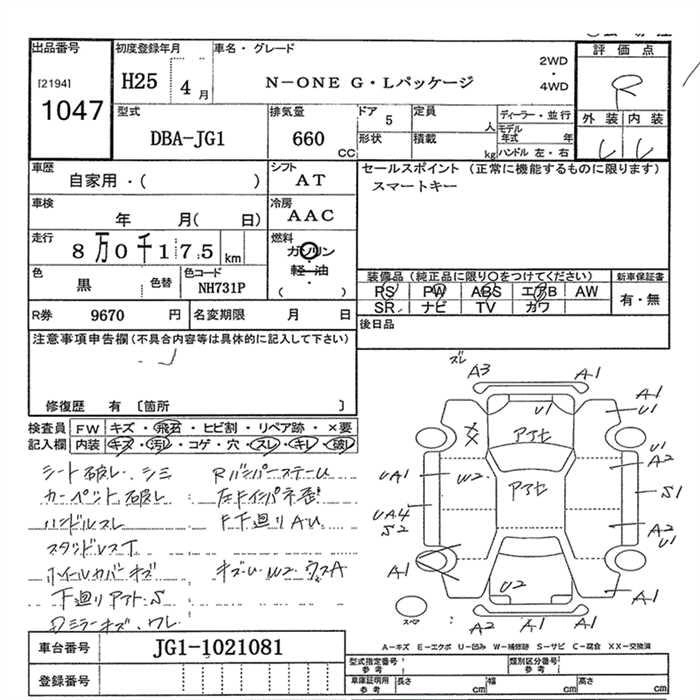 出品番号
[2194]
1047
初度登録年月
H25 4月
車名・グレード
N-ONE G・Lパッケージ
2WD
・
4WD
評価点
R
外装 内装
型式
DBA-JG1
排気量
660 CC
ドア
5
形状
定員
人
積載
kg
ディーラー・並行
モデル年式 年
ハンドル 左・右
車歴
自家用・( )
シフト
AT
セールスポイント (正常に機能するものに限ります)
スマートキー
車検
年 月( 日)
冷房
AAC
走行
8万0千175 km
燃料
ガソリン
・
軽油
・
( )
色
黒
色替
色コード
NH731P
装備品(純正品に限り○をつけてください)
新車保証書
RS PW ABS エアB AW
SR ナビ TV カワ
有・無
R券 9670 円
名変期限 月 日
後日品
注意事項申告欄(不具合内容等は具体的に記入して下さい)
修復歴 有 〔箇所 〕
検査員
記入欄
FW キズ・飛石・ヒビ割・リペア跡・×要
内装 キズ・汚レ・コゲ・穴・スレ・キレ・破レ
シート破レ、シミ
カーペット破レ
ハンドルスレ
スタッドレスT
ホイールカバーキズ
下廻りアトS
Dミラーキズ、ワレ
F下廻りAU
ズレ
A3
A1
A1
U1
U1
アトセ
アトセ
XX
U1
A2
UA1
W2
S1
UA4
S2
A2
U1
A1
U2
A1
A2
A1
スペア
車台番号
JG1-1021081
登録番号
A-キズ E-エクボ U-凹み W-補修跡 S-サビ C-腐食 XX-交換済
型式指定番号
参考
類別区分番号
参考
車庫証明用
参考
長さ cm
幅 cm
高さ cm